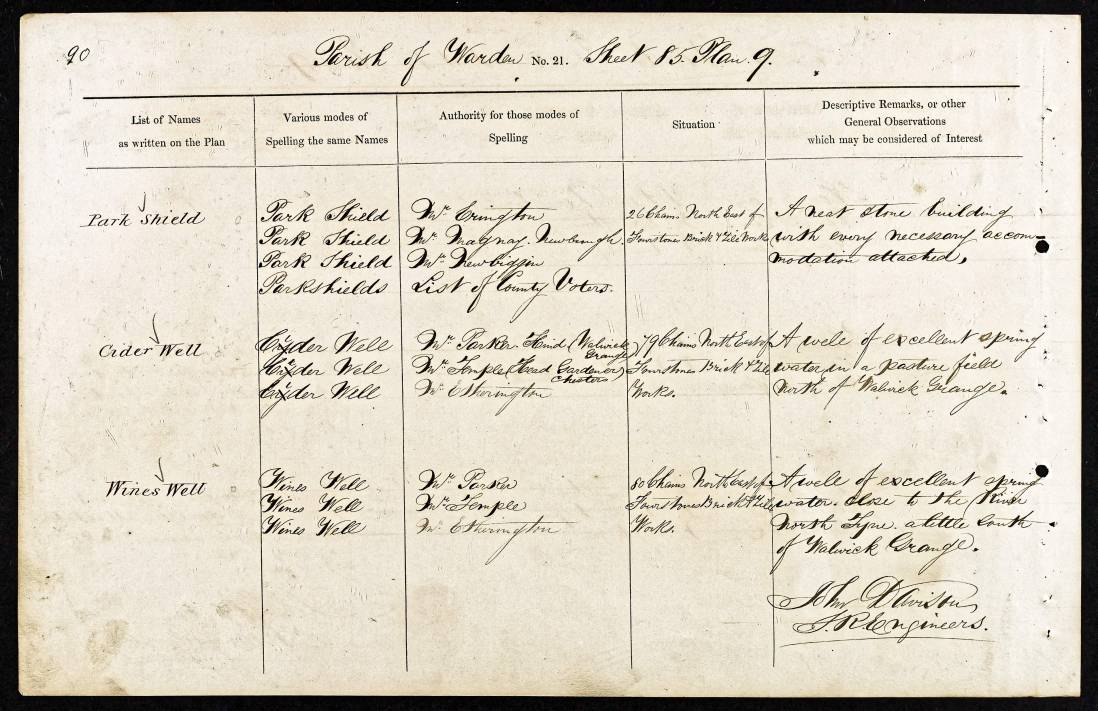 90
Parish of Warden No. 21. Sheet 85. Plan 9.
List of Names
as written on the Plan
Various modes of
Spelling the same Names
Authority for those modes of
Spelling
Situation
Descriptive Remarks, or other
General Observations
which may be considered of Interest
Park Shield
Park Shield
Park Shield
Park Shield
Parkshields
Mr. Erington
Mr. Magnay. Newbrough
Mr. Newbiggin
List of County Voters.
26 Chains North East of
Fourstones Brick & Tile Works
A neat stone building
with every necessary accom-
modation attached.
Cider Well
Cider Well
Cider Well
Cider Well
Mr. Parker. Hind (Walwick
Grange)
Mr. Temple (Head Gardener)
Chesters
Mr. Etherington
79 Chains North East of
Fourstones Brick & Tile
Works.
A well of excellent spring
water, in a pasture field
North of Walwick Grange.
Wines Well
Wines Well
Wines Well
Wines Well
Mr. Parker
Mr. Temple
Mr. Etherington
80 Chains North East of
Fourstones Brick & Tile
Works.
A well of excellent spring
water. close to the River
North Tyne. a little South
of Walwick Grange.
John Davison
S. R. Engineers.